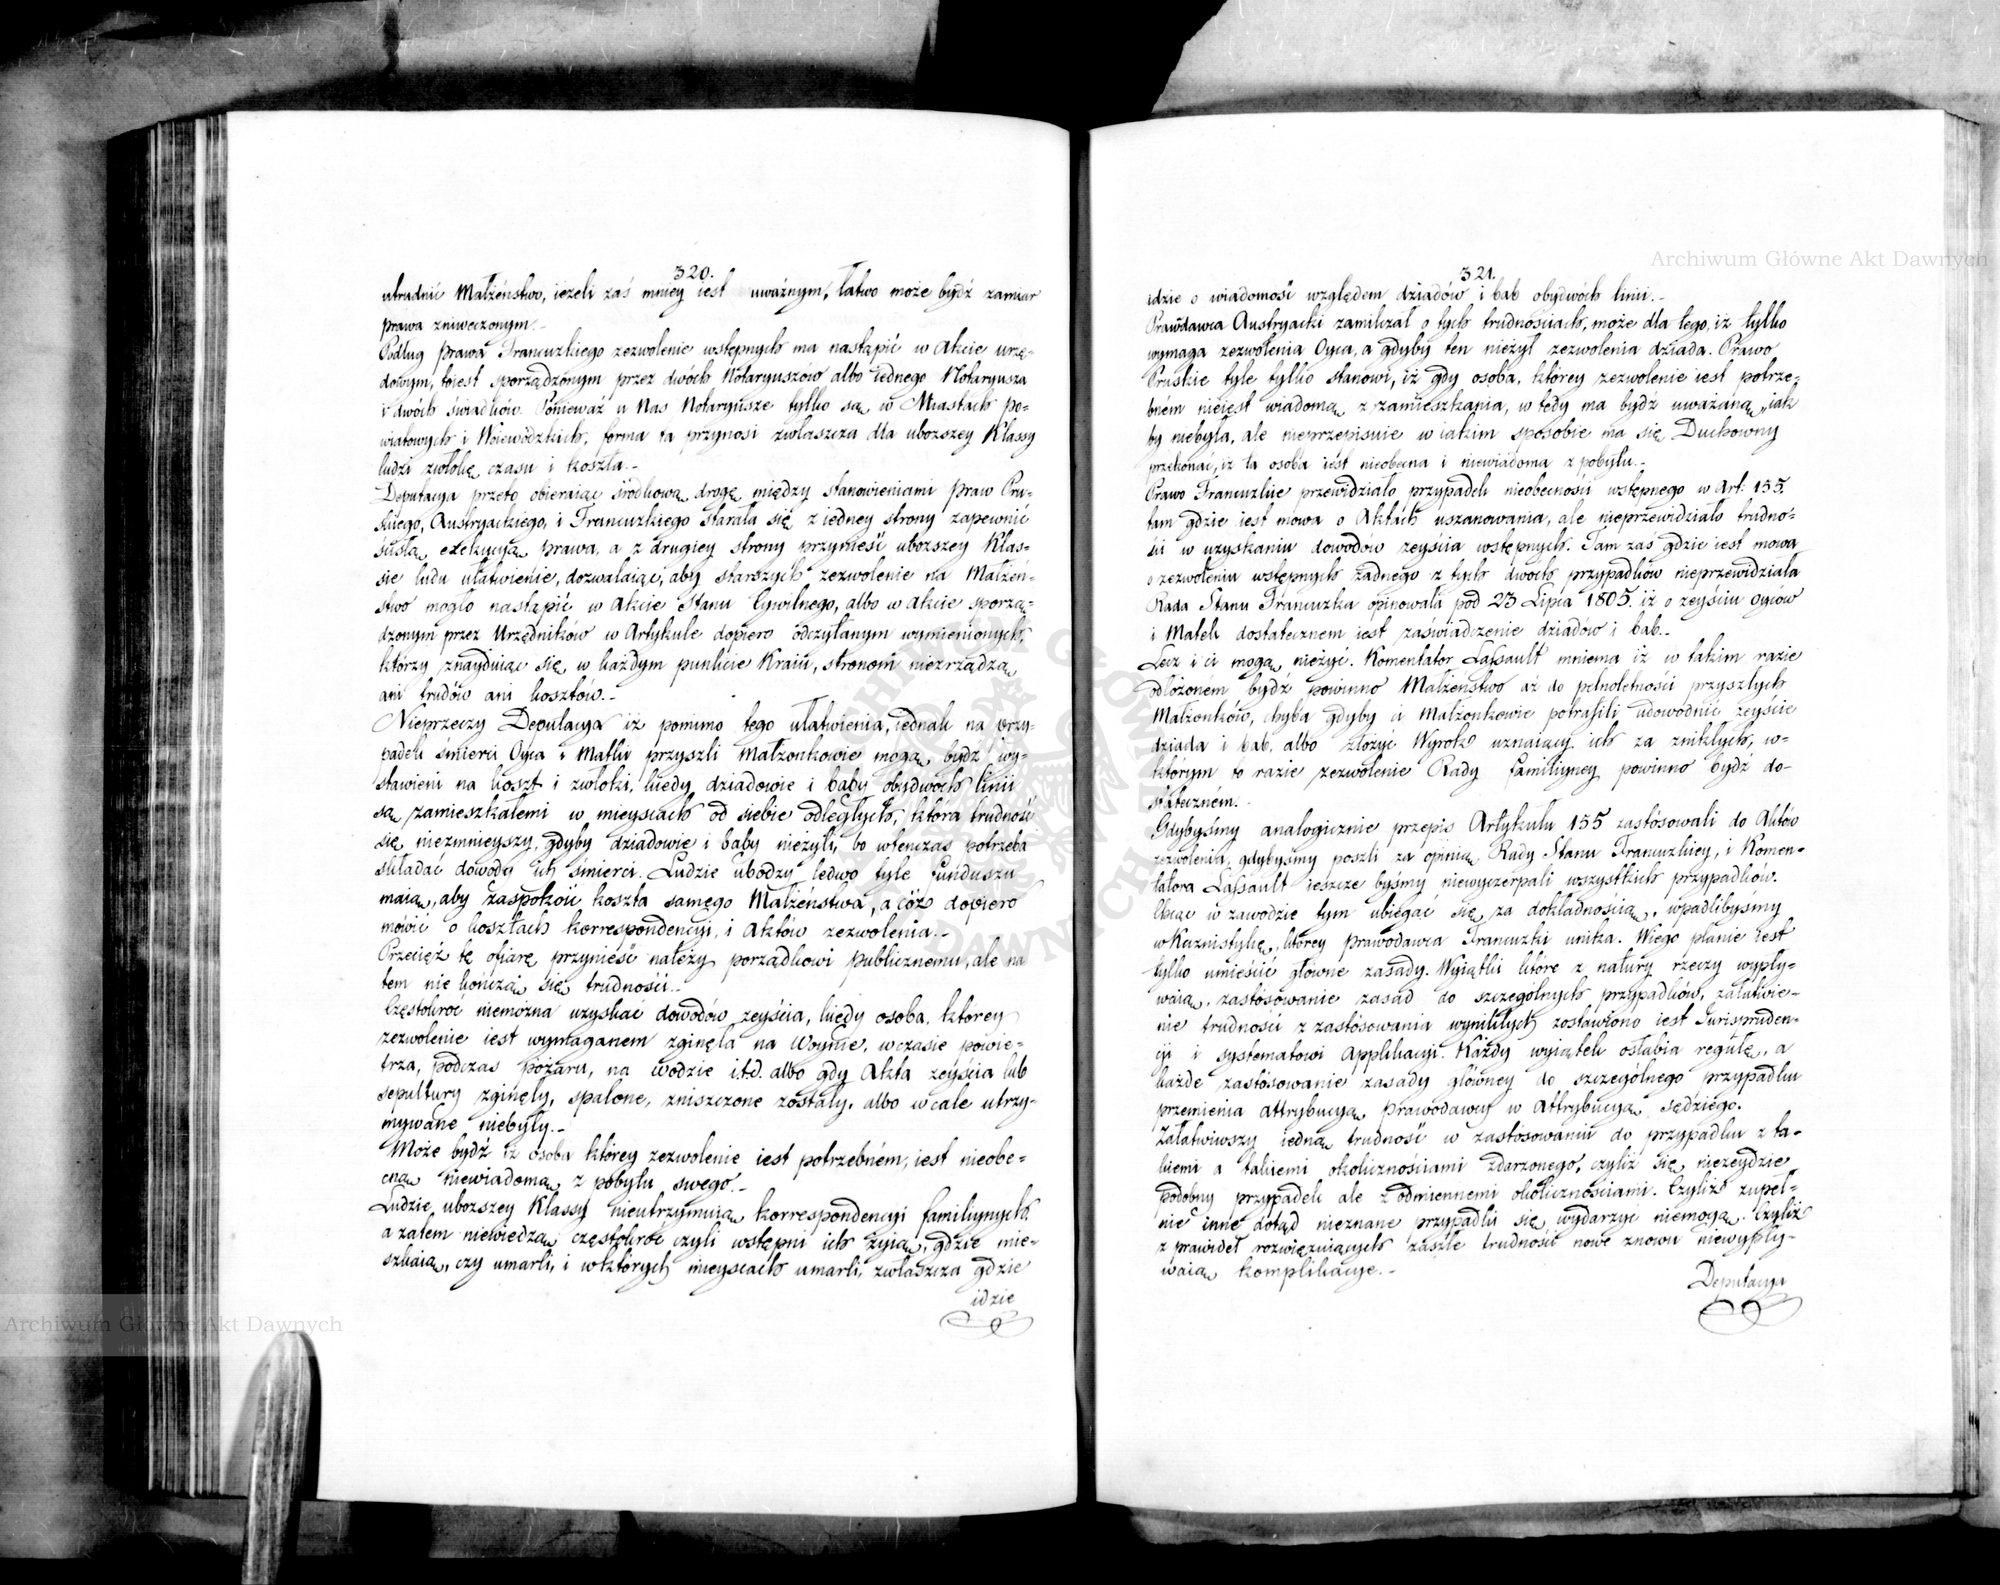 320.
utrudnić Małżeństwo, ieżeli zaś mniey iest uważnym, łatwo może bydź zamiar
prawa zniweczonym.-
Podług prawa Francuzkiego zezwolenie wstępnych ma nastąpić w Akcie urzę-
dowym, toiest sporządzonym przez dwóch Notaryuszów albo iednego Notaryusza
i dwóch świadków. Ponieważ u Nas Notaryusze tylko są w Miastach po-
wiatowych i Woiewódzkich, forma ta przynosi zwłaszcza dla uboższey Klassy
ludzi zwłokę czasu i koszta.-
Deputacya przeto obieraiąc środkową drogę między stanowieniami praw Pru-
skiego, Austryackiego, i Francuzkiego starała się z iedney strony zapewnić
ścisłą exekucyą prawa, a z drugiey strony przynieść uboższey Klas-
sie ludu ułatwienie, dozwalaiąc, aby starszych zezwolenie na Małżeń-
stwo mogło nastąpić w Akcie Stanu Cywilnego, albo w Akcie sporzą-
dzonym przez Urzędników w Artykule dopiero odczytanym wymienionych,
którzy znayduiąc się w każdym punkcie Kraiu, stronom niezrządzą
ani trudów ani kosztów.-
Nieprzeczy Deputacya iż pomimo tego ułatwienia, iednak na przy-
padek śmierci Oyca i Matki przyszli Małżonkowie mogą bydź wy-
stawieni na koszt i zwłoki, kiedy dziadowie i baby obydwóch linii
są zamieszkałemi w mieyscach od siebie odległych, która trudność
się niezmnieyszy, gdyby dziadowie i baby nieżyli, bo wtenczas potrzeba
składać dowody ich śmierci. Ludzie ubodzy ledwo tyle funduszu
maią, aby zaspokoić koszta samego Małżeństwa, a cóż dopiero
mówić o kosztach korrespondencyi, i Aktów zezwolenia.-
Przecięż tę ofiarę przynieść należy porządkowi publicznemu, ale na
tem nie kończą się trudności.-
Częstokroć niemożna uzyskać dowodów zeyścia, kiedy osoba, którey
zezwolenie iest wymaganem zginęła na Woynie, w czasie powie-
trza, podczas pożaru, na wodzie i.t.d. albo gdy Akta zeyścia lub
sepultury zginęły, spalone, zniszczone zostały, albo wcale utrzy-
mywane niebyły.-
Może bydź iż osoba którey zezwolenie iest potrzebném, iest nieobe-
cną niewiadomą z pobytu swego.-
Ludzie uboższey Klassy nieutrzymuią korrespondencyi familiynych,
a zatem niewiedzą częstokroć czyli wstępni ich żyią, gdzie mie-
szkaią, czy umarli, i w których mieyscach umarli, zwłaszcza gdzie
idzie
321.
idzie o wiadomość względem dziadów i bab obydwóch linii.-
Prawodawca Austryacki zamilczał o tych trudnościach, może dla tego, iż tylko
wymaga zezwolenia Oyca, a gdyby ten nieżył zezwolenia dziada. Prawo
Pruskie tyle tylko stanowi, iż gdy osoba, którey zezwolenie iest potrze-
bném nieiest wiadomą z zamieszkania, wtedy ma bydź uważaną, iak
by niebyła, ale nieprzepisuie w iakim sposobie ma się Duchowny
przekonać, iż ta osoba iest nieobecna i niewiadoma z pobytu.-
Prawo Francuzkie przewidziało przypadek nieobecności wstępnego w Art: 155.
tam gdzie iest mowa o Aktach uszanowania, ale nieprzewidziało trudno-
ści w uzyskaniu dowodów zeyścia wstępnych. Tam zaś gdzie iest mowa
o zezwoleniu wstępnych żadnego z tych dwóch przypadków nieprzewidziała
Rada Stanu Francuzka opinowała pod 23 Lipca 1805. iż o zeyściu Oyców
i Matek dostatecznem iest zaświadczenie dziadów i bab.-
Lecz i ci mogą nieżyć. Komentator Lassault mniema iż w takim razie
odłożoném bydź powinno Małżeństwo aż do pełnoletności przyszłych
Małżonków, chyba gdyby ci Małżonkowie potrafili udowodnić zeyście
dziada i bab, albo złożyć Wyrok uznaiący ich za znikłych, w-
którym to razie zezwolenie Rady familiyney powinno bydź do-
stateczném.-
Gdybyśmy analogicznie przepis Artykułu 155 zastosowali do Aktów
zezwolenia, gdybyśmy poszli za opinią Rady Stanu Francuzkiey, i Komen-
tatora Lassault ieszcze byśmy niewyczerpali wszystkich przypadków.
Chcąc w zawodzie tym ubiegać się za dokładnością, wpadlibyśmy
w Kazuistykę, którey prawodawca Francuzki unika. W iego planie iest
tylko umieścić główne zasady. Wyiątki które z natury rzeczy wypły-
waią, zastosowanie zasad do szczególnych przypadków, załatwie-
nie trudności z zastosowania wynikłych zostawiono iest Jurispruden-
cyi i systematowi Applikacyi. Każdy wyiątek osłabia regułę, a
każde zastosowanie zasady główney do szczególnego przypadku
przemienia Attrybucyą Prawodawcy w Attrybucyą Sędziego.
Załatwiwszy iedną trudność w zastosowaniu do przypadku z ta-
kiemi a takiemi okolicznościami zdarzonego, czyliż się niezeydzie
podobny przypadek ale z odmiennemi okolicznościami. Czyliż zupeł-
nie inne dotąd nieznane przypadki się wydarzyć niemogą. Czyliż
z prawideł rozwiązuiących zaszłe trudności nowe znowu niewypły-
waią komplikacye.-
Deputacya
Archiwum Główne Akt Dawnych
Archiwum Główne Akt Dawnych